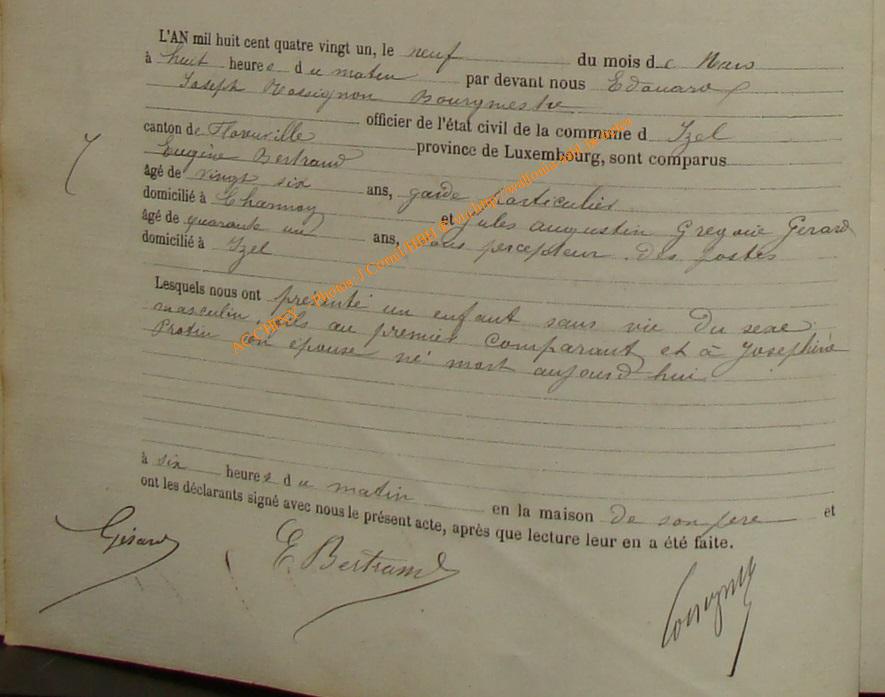 L'AN mil huit cent quatre vingt un, le neuf du mois de Mars
à huit heures du matin par devant nous Edouard
Joseph Rossignon Bourgmestre
officier de l'état civil de la commune d Izel
canton de Florenville province de Luxembourg, sont comparus
Eugène Bertrand
âgé de vingt six ans, garde particulier
domicilié à et Jules augustin Gregoire Gerard
âgé de quarante un ans, sous percepteur des postes
domicilié à Izel
Lesquels nous ont présenté un enfant sans vie du sexe
masculin, fils au premier comparant et à Joséphine
Protin son épouse né mort aujourd'hui
à six heures du matin en la maison de son père et
ont les déclarants signé avec nous le présent acte, après que lecture leur en a été faite.
Gérard E. Bertrand